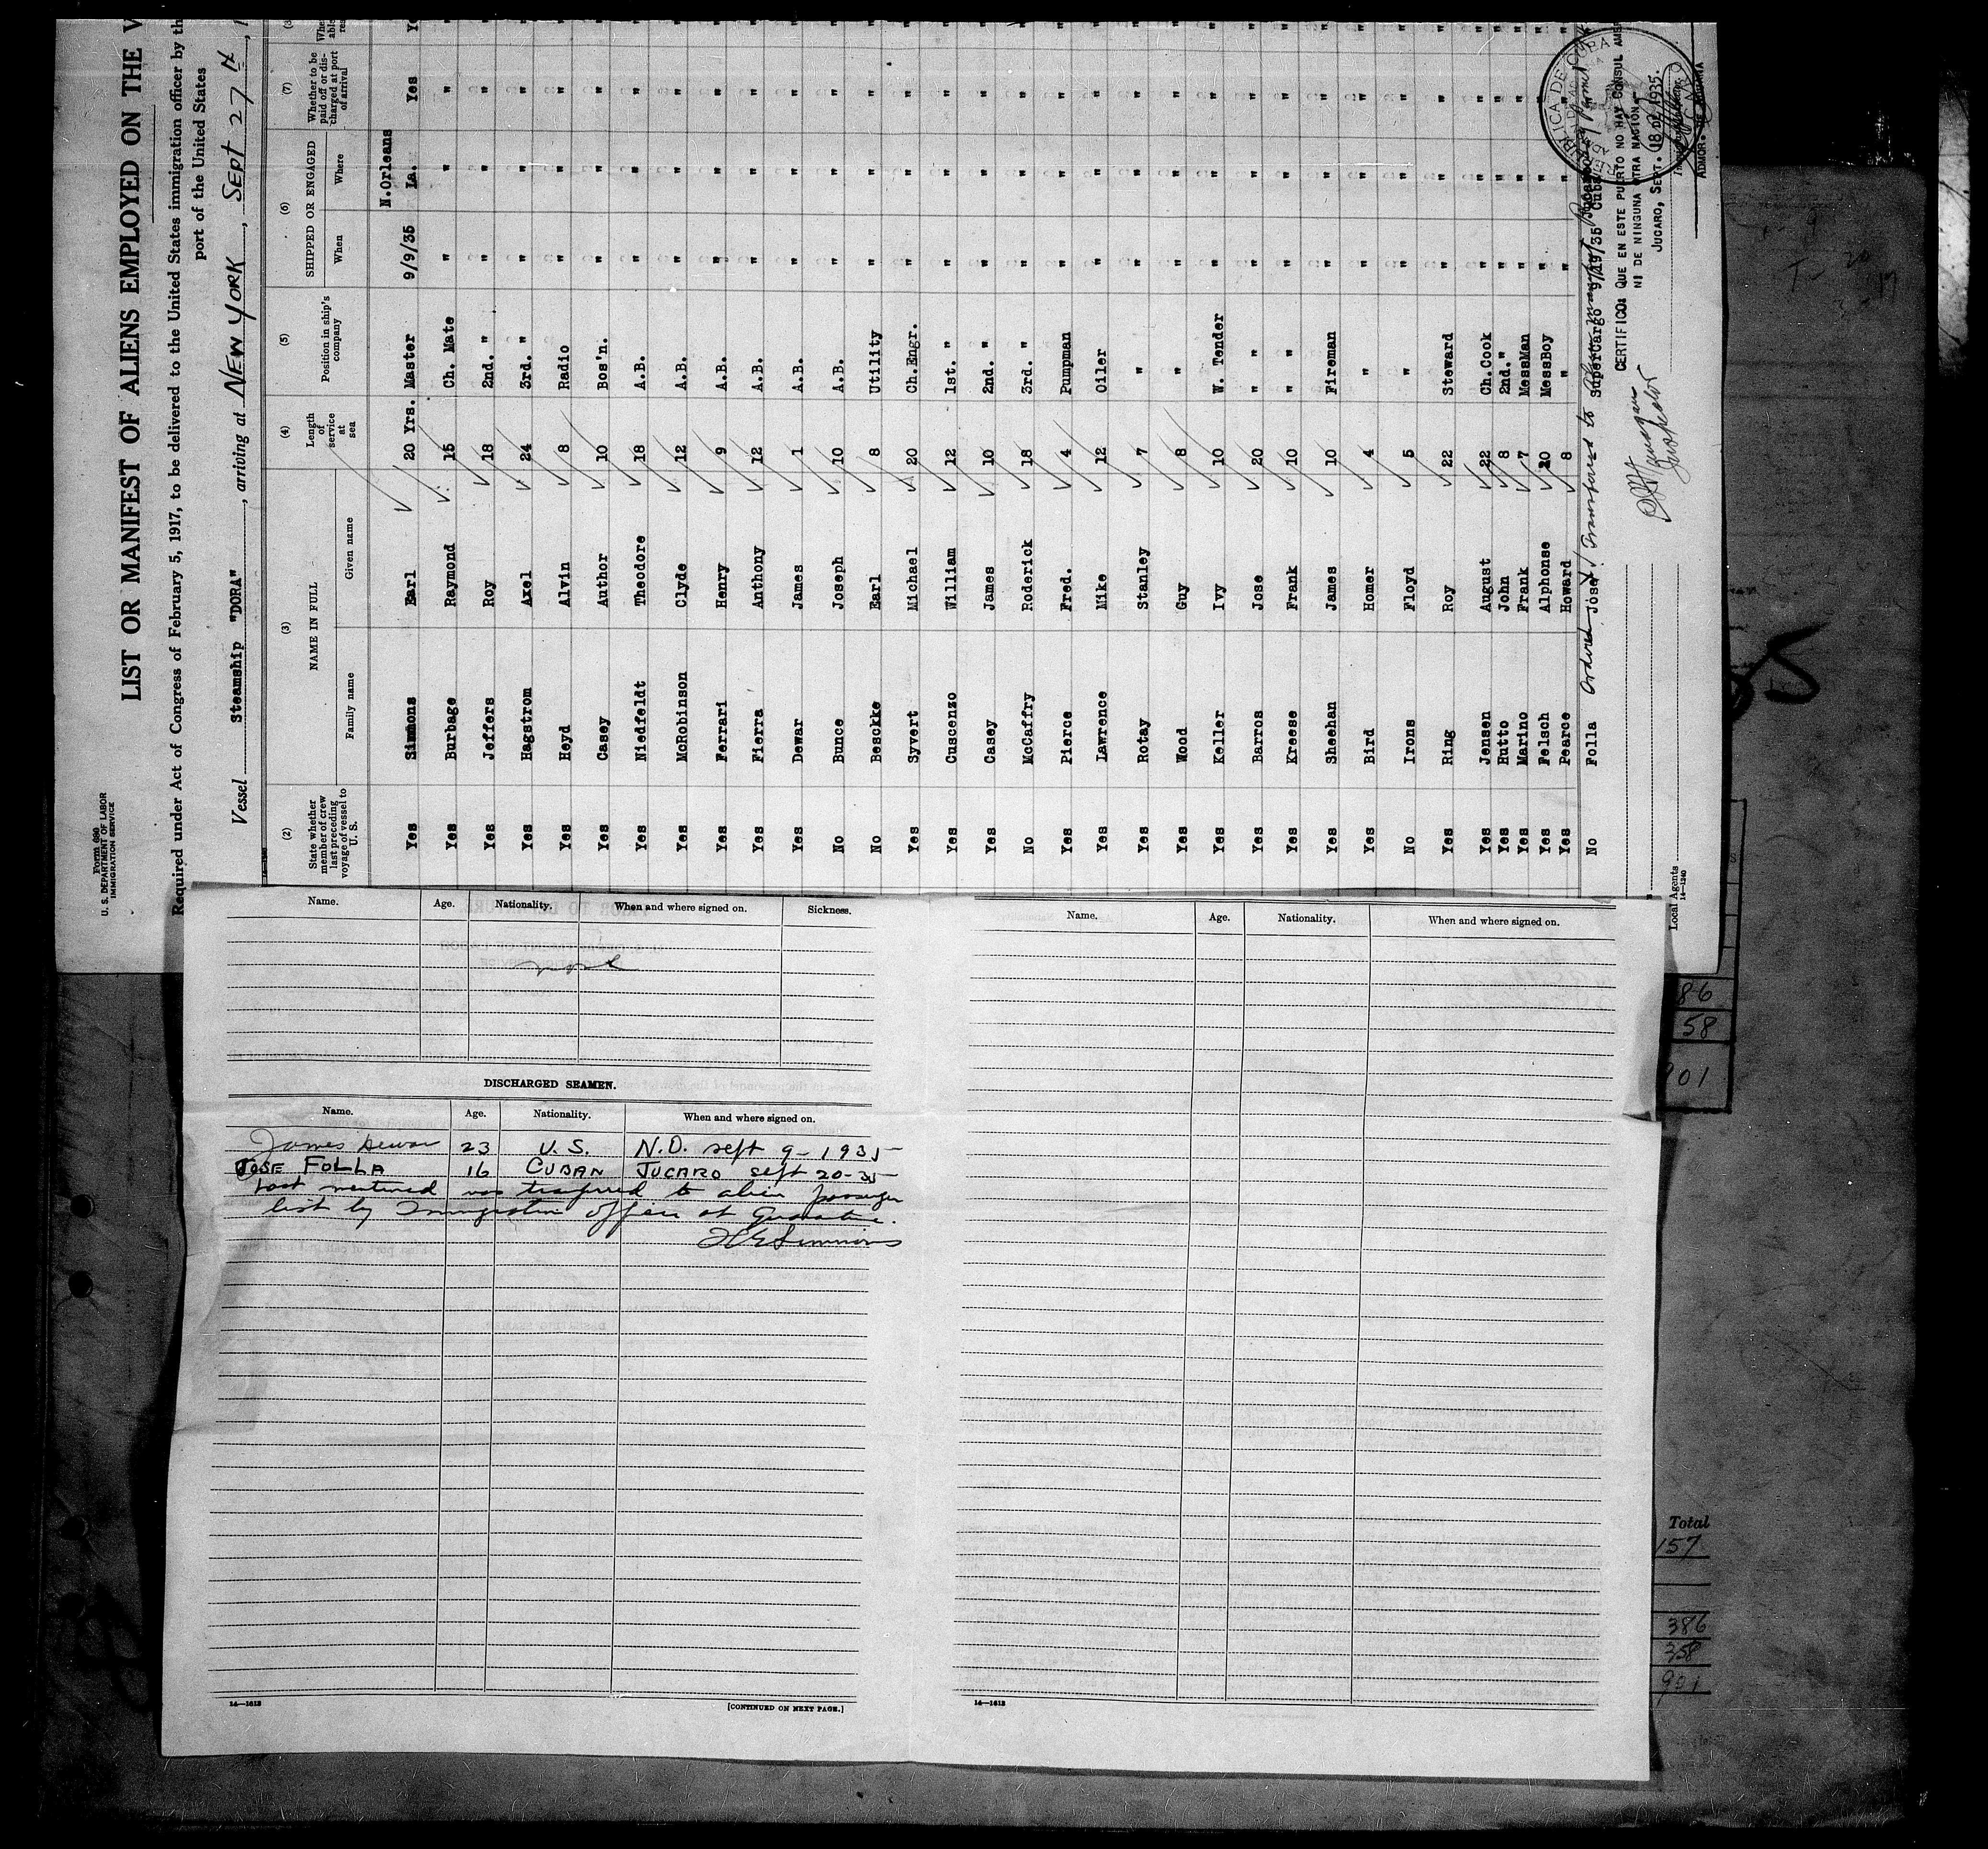 Form 680
U. S. DEPARTMENT OF LABOR
IMMIGRATION SERVICE
LIST OR MANIFEST OF ALIENS EMPLOYED ON THE V
Required under Act of Congress of February 5, 1917, to be delivered to the United States immigration officer by th
port of the United States
Vessel Steamship "DORA", arriving at NEW YORK, SEPT 27th, 1
(2) (3) (4) (5) (6) (7) (8)
State whether member of crew last preceding voyage of vessel to U. S. NAME IN FULL Length of service at sea Position in ship's company SHIPPED OR ENGAGED Whether to be paid off or discharged at port of arrival
Family name Given name When Where
N.Orleans
Yes Simmons Earl 20 Yrs. Master 9/9/35 La. Yes Ye
Yes Burbage Raymond 15 Ch. Mate " " " "
Yes Jeffers Roy 18 2nd. " " " " "
Yes Hagstrom Axel 24 3rd. " " " " "
Yes Heyd Alvin 8 Radio " " " "
Yes Casey Author 10 Bos'n. " " " "
Yes Niedfeldt Theodore 18 A.B. " " " "
Yes McRobinson Clyde 12 A.B. " " " "
Yes Ferrari Henry 9 A.B. " " " "
Yes Fierra Anthony 12 A.B. " " " "
Yes Dewar James 1 A.B. " " " "
No Bunce Joseph 10 A.B. " " " "
No Besckke Earl 8 Utility " " " "
Yes Syvert Michael 20 Ch.Engr. " " " "
Yes Cuscenzo William 12 1st. " " " " "
Yes Casey James 10 2nd. " " " " "
No McCaffry Roderick 18 3rd. " " " " "
Yes Pierce Fred. 4 Pumpman " " " "
Yes Lawrence Mike 12 Oiler " " " "
Yes Rotay Stanley 7 " " " " "
Yes Wood Guy 8 " " " " "
Yes Keller Ivy 10 W. Tender " " " "
Yes Barros Jose 20 " " " " " "
Yes Kreese Frank 10 " " " " " "
Yes Sheehan James 10 Fireman " " " "
Yes Bird Homer 4 " " " " "
No Irons Floyd 5 " " " " "
Yes Ring Roy 22 Steward " " " "
Yes Jensen August 22 Ch.Cook " " " "
Yes Hutto John 8 2nd." " " " "
Yes Marino Frank 7 MessMan " " " "
Yes Felsch Alphonse 20 MessBoy " " " "
Yes Pearce Howard 8 " " " " "
No Folla Jose SuperCargo 9/19/35 Cuba
Ordered transferred to
CERTIFICO: QUE EN ESTE PUERTO NO HAY CONSUL AME
NI DE NINGUNA OTRA NACION.
JUCARO, SEPT. 18 DE 1935.
Inspector
ADMOR. DE ADUANA
Local Agents
14—1240
Name. Age. Nationality. When and where signed on. Sickness.
none
DISCHARGED SEAMEN.
Name. Age. Nationality. When and where signed on.
James Dewar 23 U. S. N.O. sept 9-1935
JOSE FOLLA 16 CUBAN JUCARO sept 20-35
Last mentioned was transferred to alien passenger
list by Immigration officer at Quarantine.
H E Simmons
14—1613 [CONTINUED ON NEXT PAGE.]
Name. Age. Nationality. When and where signed on.
14—1613
86
58
901
Total
157
386
358
901